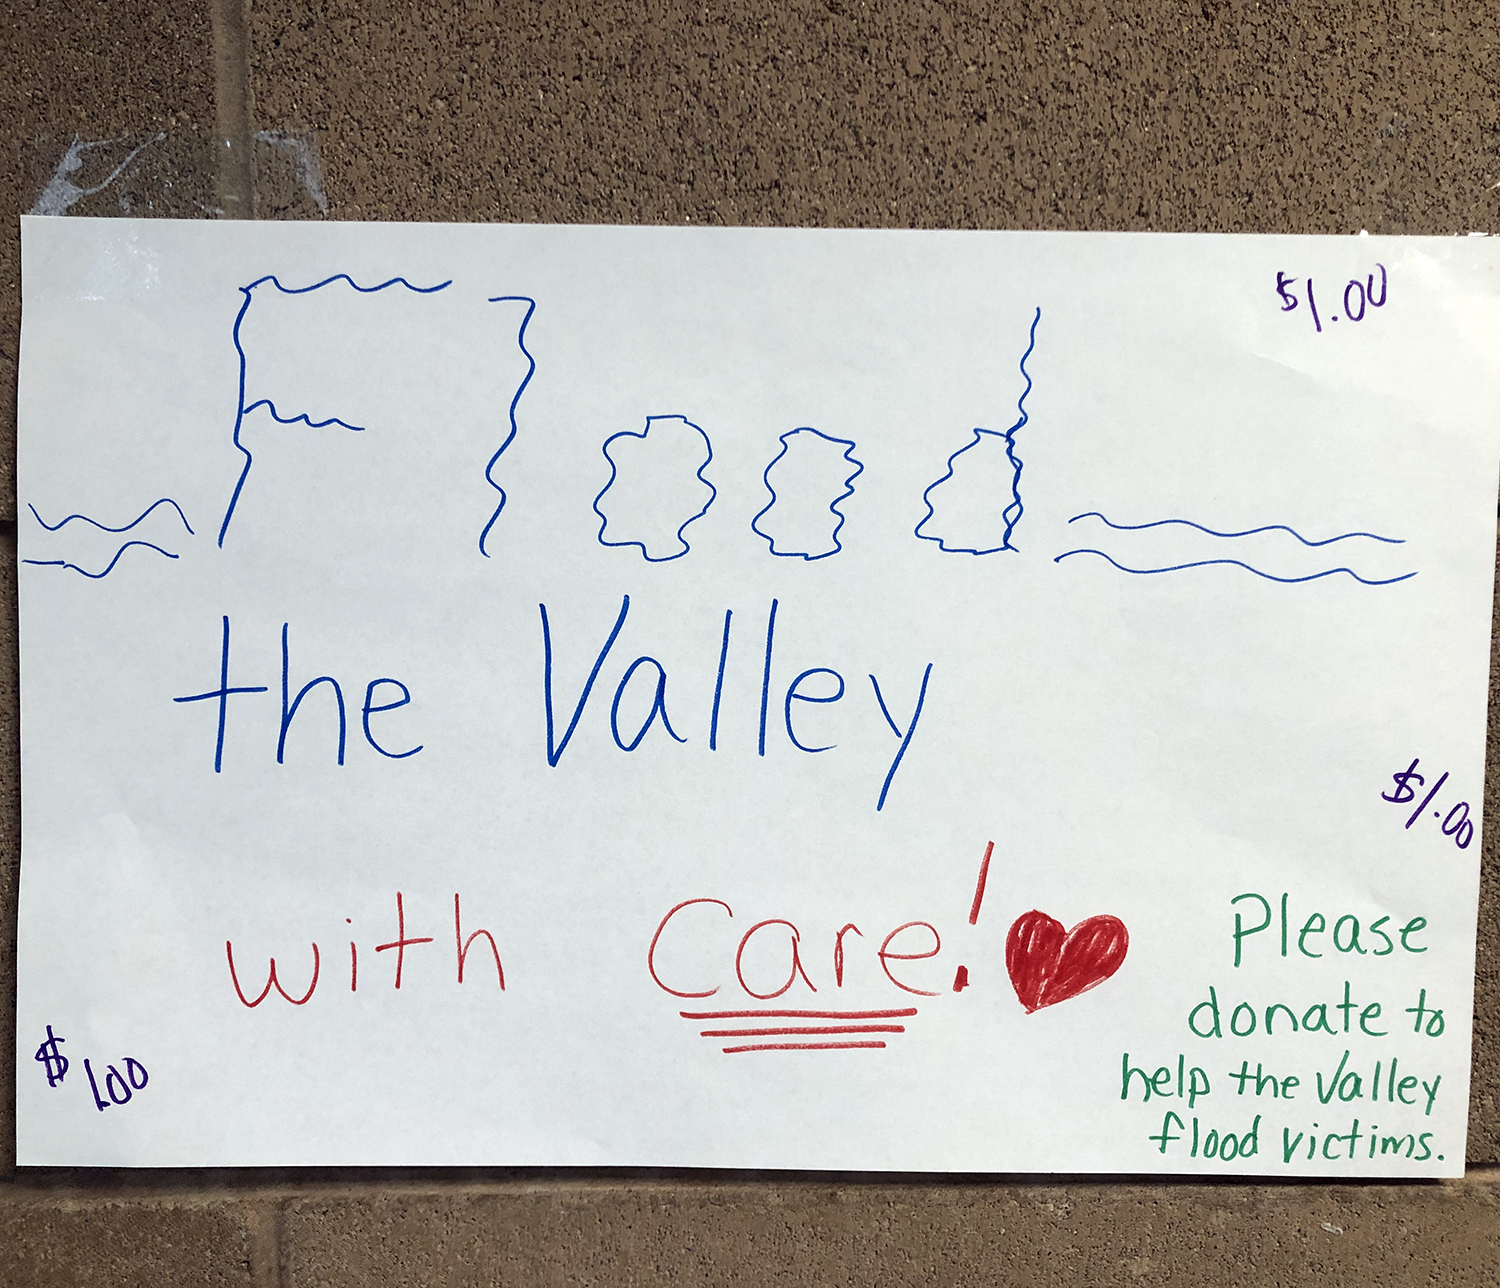 $1.00
Flood
the Valley
$1.00
with Care!
Please
donate to
help the Valley
flood victims.
$1.00